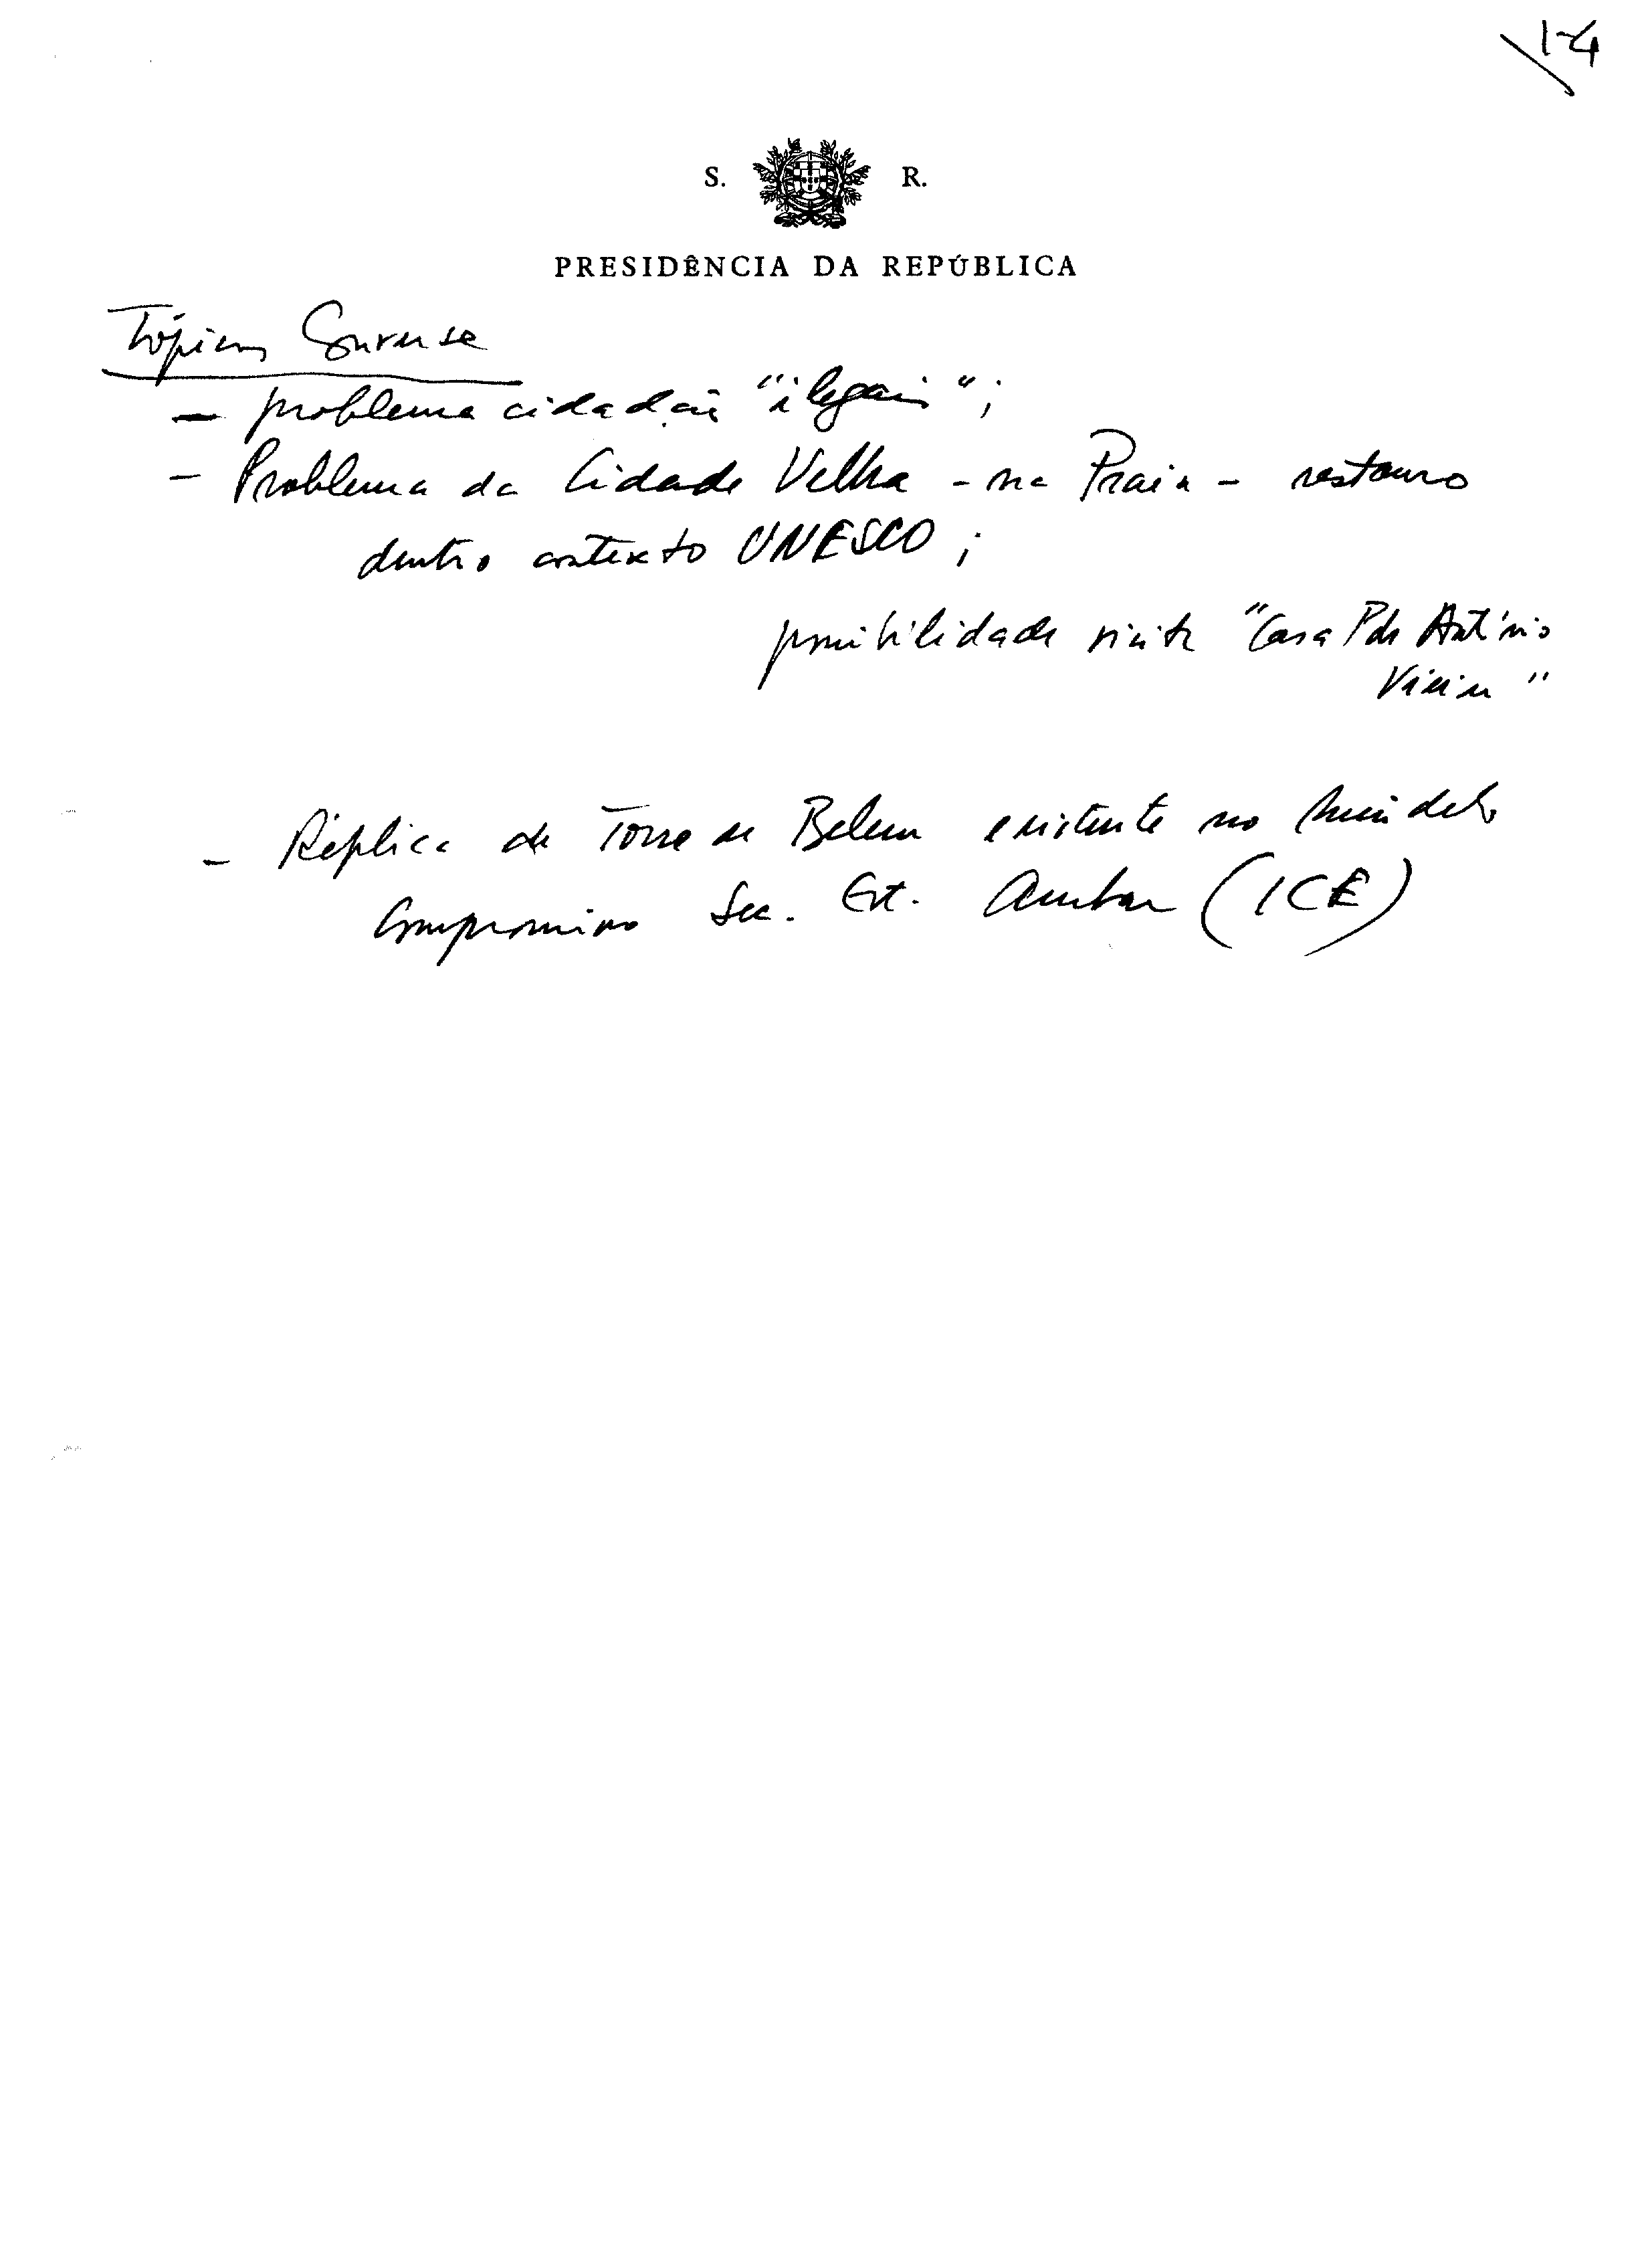 1-4
S. R.
PRESIDÊNCIA DA REPÚBLICA
Tópicos Conversa
- problema cidadãos "ilegais";
- Problema da Cidade Velha - na Praia - restauro
dentro contexto UNESCO;
possibilidade visita "Casa Pde António
Vieira"
- Réplica da Torre de Belem existente no Mindelo
Compromisso Sec. Est. (ICE)